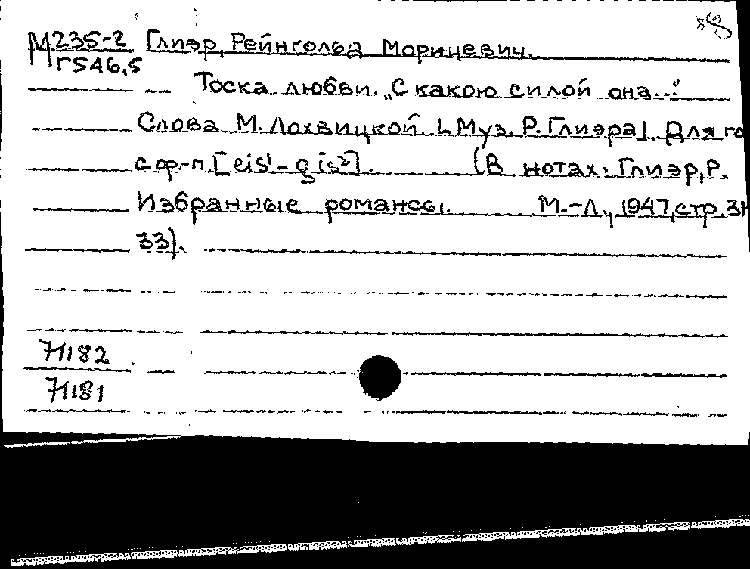 М235-2 Глиэр, Рейнгольд Морицевич.
Г546,5
Тоска любви. „С какою силой она..."
Слова М. Лохвицкой. [Муз. Р. Глиэра]. Для го
с ф-п. [eis¹-gis²]. (В нотах: Глиэр, Р.
Избранные романсы. М.-Л., 1947, стр. 31
33).
71182
71181